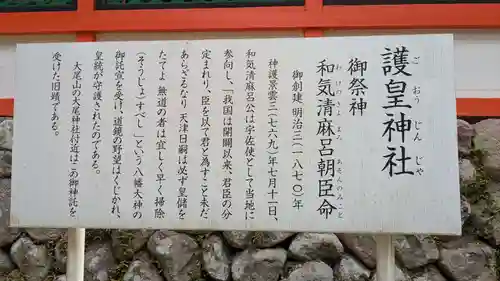 護皇神社
ご おう じん じゃ
御祭神
和気清麻呂朝臣命
わ けの きよ まろ あそんのみこと
御創建 明治三(一八七〇)年
神護景雲三(七六九)年七月十一日、
和気清麻呂公は宇佐使として当地に
参向し、「我国は開闢以来、君臣の分
定まれり、臣を以て君と為すこと未だ
あらざるなり 天津日嗣は必ず皇儲を
たてよ 無道の者は宜しく早く掃除
(そうじょ)すべし」という八幡大神の
御託宣を受け、道鏡の野望はくじかれ、
皇統が守護されたのである。
大尾山の大尾神社付近はこの御神託を
受けた旧蹟である。